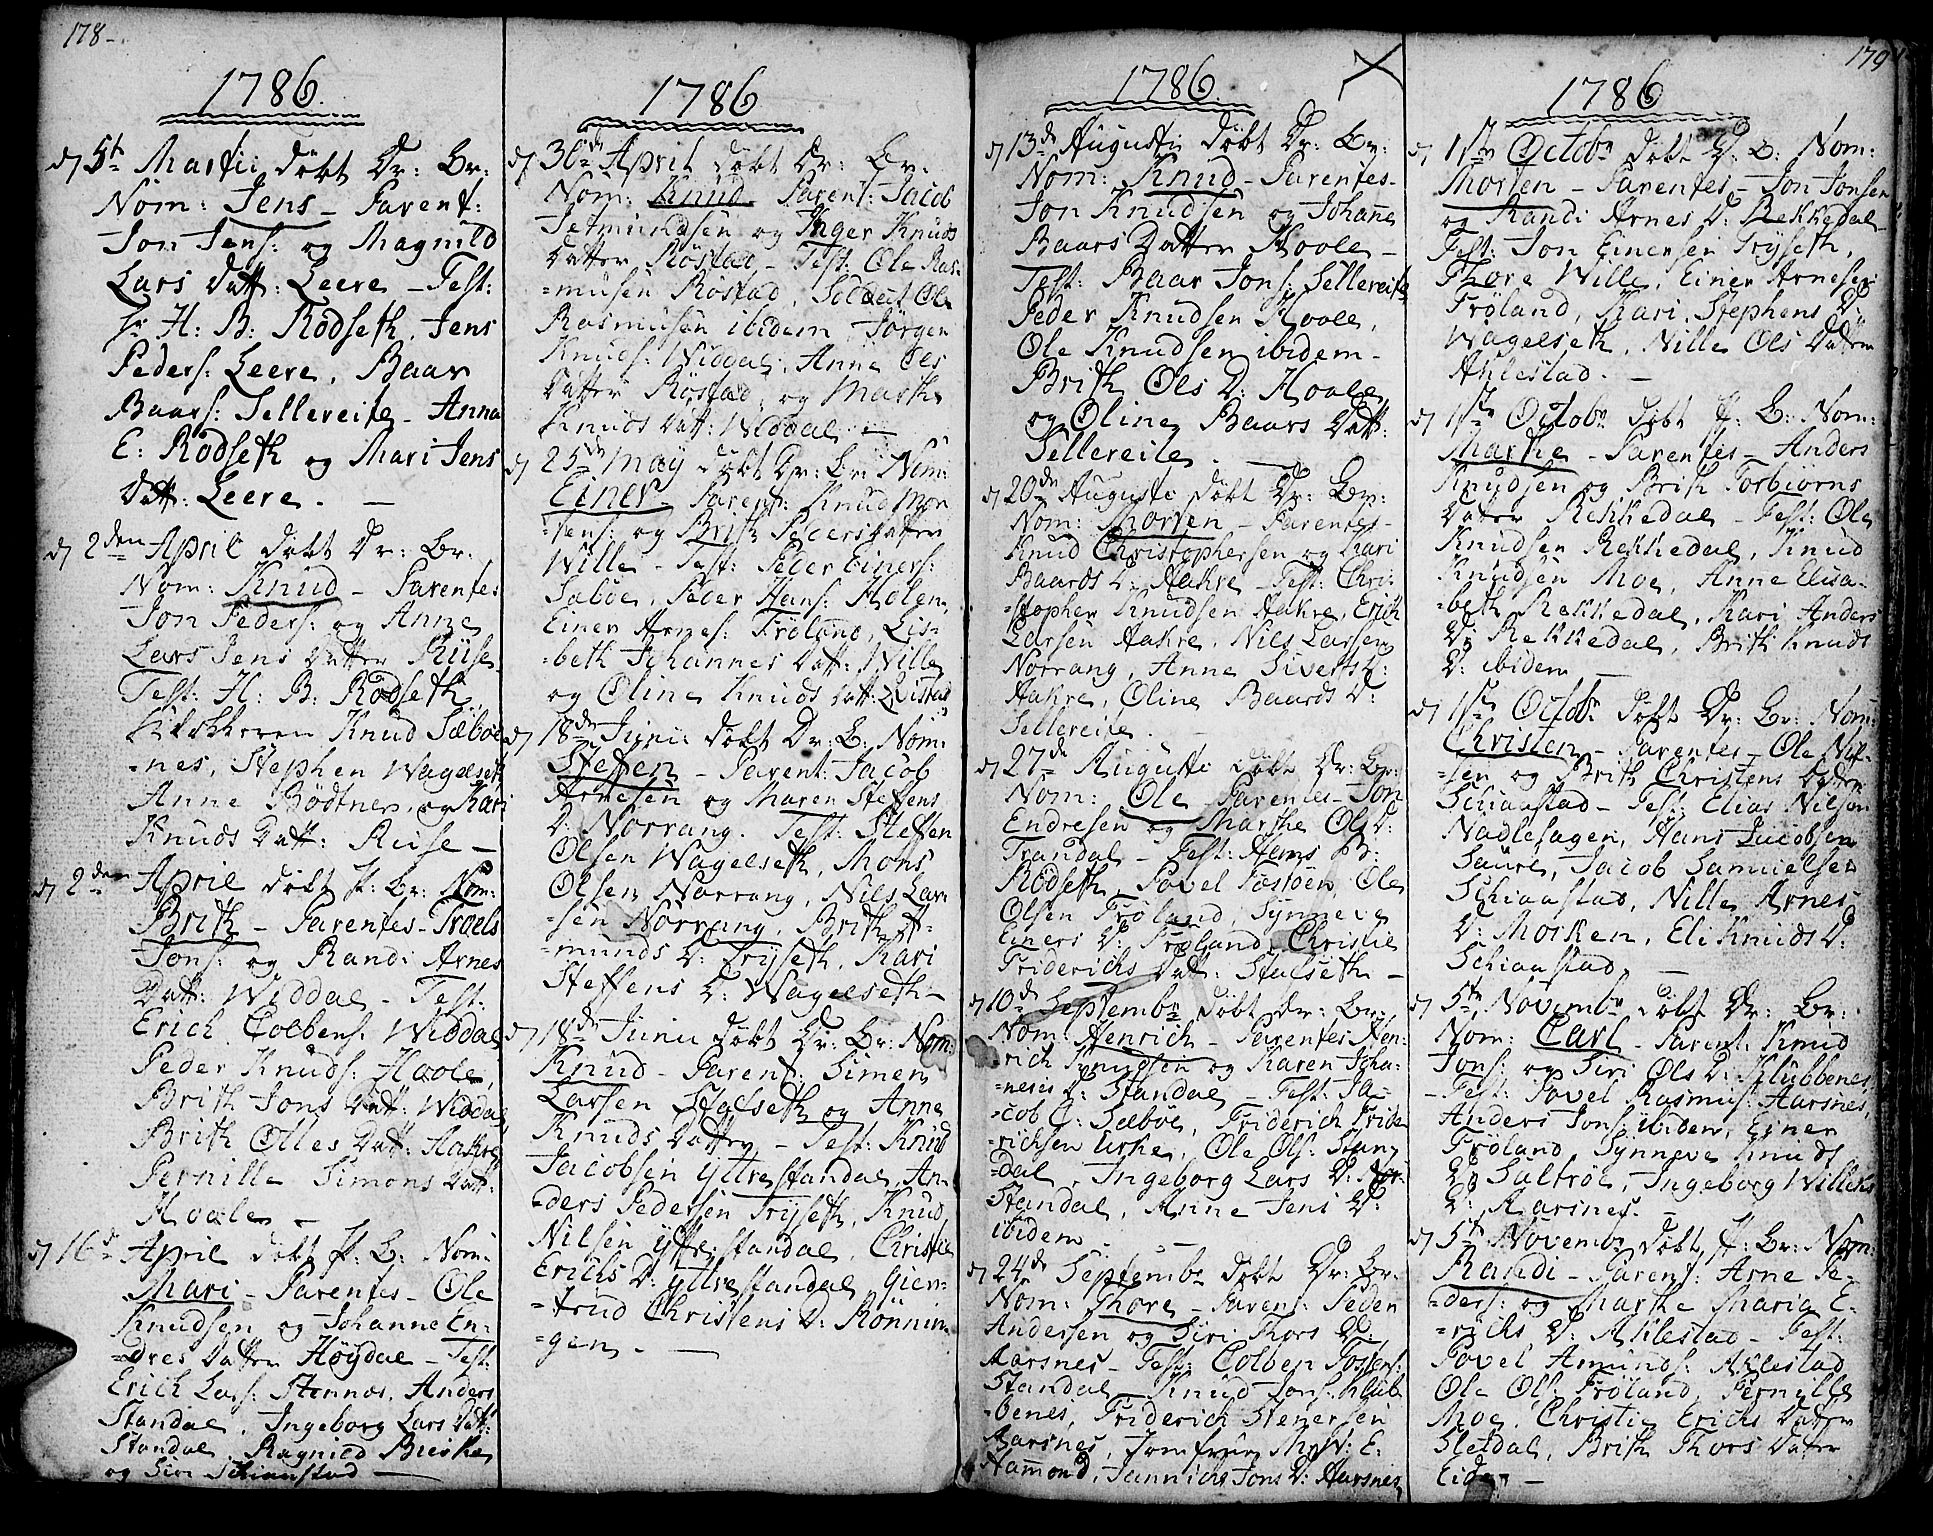 178-
1786.
d 5t Martii döbt Dr: Br:
Nom: Jens - Parent:
Jon Jens: og Magnild
Lars Datt: Leere - Test:
Hr H: B: Rödseth, Jens
Peders: Leere, Baar
Baars: Sellereite - Anna
E: Rödseth og Mari Jens
Datt: Leere. -
d 2den April döbt Dr: Br:
Nom: Knud - Parentes
Jon Peders: og Anne
Lars Jens Datter Riise
Test: H: B: Rödseth,
Klokkeren Knud Sæbøe
=nes, Stephen Wagelseth
Anne Bödtner, og Kari
Knuds Datt: Riise -
d 2den April döbt P: Br: Nom:
Brith - Parentes - Troels
Jons: og Randi Arnes
Datt: Widdal - Test:
Erich Colbens: Widdal
Peder Knuds: Hoole,
Brith Jons Datt: Widdal,
Brith Olles Datt: Aakre
Pernille Simons Datt:
Hoole -
d 16d April döbt P: B: Nom:
Mari - Parentes - Ole
Knudsen og Johanne En-
=dres Datter Höydal - Test:
Erich Lars: Stennes, Anders
Standal, Ingeborg Lars Datt:
Standal, Ragnild Buske
og Siri Schiaastad -
1786
d 30de April döbt Dr: Br.
Nom: Knud - Parent: Jacob
Jetmundsen og Inger Knuds
Datter Röstad - Test: Ole Ras-
=musen Röstad, Soldat Ole
Rasmusen ibidem, Jörgen
Knuds: Widdal, Anne Ols
Datter Röstad, og Marthe
Knuds Datt: Widdal -
d 25de May döbt Dr: Br: Nom:
Einer - Parent: Knud Mor
=tens: og Brith Peders Datter
Wille - Test: Peder Einers:
Sæböe, Peder Hans: Holen,
Einer Arnes: Fröland, Lis-
=beth Johannes Datt: Wille
og Oline Knuds Datt: Qvistad
d 18de Juni: döbt Dr: B: Nom:
Steffen - Parent: Jacob
Arnesen og Maren Steffens
D: Norrang. Test: Steffen
Olsen Wagelseth, Mons
Olsen Norrang, Nils Lar
=sen Norrang, Brith At-
=munds D: Tryseth, Kari
Steffens D: Wagelseth -
d 18de Junii döbt Dr: Br: Nom:
Knud - Parent: Simen
Larsen Stalseth og Anne
Knuds Datter - Test: Knud
Jacobsen Yttrestandal, An-
=ders Pedersen Tryseth, Knud
Nilsen Yttrestandal, Christie
Erichs D: Yttrestandal, Gier-
=trud Christens D: Rönnin-
=gen. -
1786.
d 13de Augusti döbt Dr: Br:
Nom: Knud - Parentes -
Jon Knudsen og Johane
Baars Datter Hoole -
Test: Baar Jons: Sellereite
Peder Knudsen Hoole,
Ole Knudsen ibidem -
Brith Ols D: Hoole,
og Oline Baars Datt:
Sellereite. -
d 20de Augusti döbt Dr: Br:
Nom: Morten - Parentes -
Knud Christophersen og Kari
Baards D: Aakre - Test: Chri-
=stopher Knudsen Aakre, Erich
Larsen Aakre, Nils Larsen
Norrang, Anne Siverts D:
Aakre, Oline Baards D:
Sellereite. -
d 27de Augusti döbt Dr: Br:
Nom: Ole - Parentes - Jon
Endresen og Marthe Ols D:
Trandal - Test: Hans B:
Rödseth, Povel Fostöen, Ole
Olsen Fröland, Synneve
Einers D: Fröland, Christie
Friderichs Datt: Stalseth -
d 10de Septembr döbt Dr: Br:
Nom: Henrich - Parentes Hen-
rich Knudsen og Karen Joha-
=neses D: Standal - Test: Ja-
=cob J: Sæböe, Friderich Fride
=richsen Urke, Ole Ols: Stan-
=dal, Ingeborg Lars D: Nor-
Standal, Anne Jens D:
ibidem. -
d 24de Septembr döbt Dr: Br:
Nom: Thore - Parent: Peder
Andersen og Siri Thors D:
Aarsnes - Test: Colben Tostens:
Standal, Knud Jons: Klub
=benes, Friderich Stenersen
Aarsnes, Jomfrue E:
Hammond, Jannichs Jons D: Aarsnes
179
1786
d 1ste Octobr döbt D: B: Nom:
Morten - Parentes - Jon Jonsen
og Randi Arnes D: Rekkedal -
Test: Jon Einersen Tryseth,
Thore Wille, Einer Arnesen
Fröland, Kari Stephens D:
Wagelseth, Nille Ols Datter
Aklestad. -
d 1ste Octobr döbt P: B: Nom:
Marthe - Parentes - Anders
Knudsen og Brith Torbiörns
Datter Rekkedal - Test: Ole
Knudsen Rekkedal, Knud
Knudsen Moe, Anne Elisa-
=beth Rekkedal, Kari Anders
D: Rekkedal, Brith Knuds
D: ibidem -
d 1ste Octobr döbt Dr: Br: Nom:
Christen - Parentes - Ole Nil-
=sen og Brith Christens Datter
Schiaastad - Test: Elias Nilsen
Nadlehagen, Hans Jacobsen
Saure, Jacob Samuelsen
Schiaastad, Nille Arnes
D: Morken, Eli Knuds D:
Schiaastad. -
d 5te Novembr döbt Dr: Br:
Nom: Carl - Parent: Knud
Jons: og Siri Ols D: Klubbenes
- Test: Povel Rasmus: Aarsnes,
Anders Jons: ibidem, Einer
Fröland, Synneve Knuds
D: Saltröe, Ingeborg Willichs
D: Aarsnes. -
d 5te Novembr döbt P: Br: Nom:
Randi - Parent: Arne Pe-
=ders: og Marthe Maria E-
=richs D: Aklestad - Test:
Povel Amunds: Aklestad
Ole Ols: Fröland, Pernille
Moe, Christie Erichs Datter
Sletdal, Brith Thors Datter
Eide -